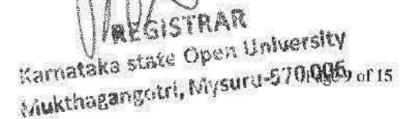 REGISTRAR
Karnataka state Open University
Mukthagangotri, Mysuru-570 006
Page 9 of 15